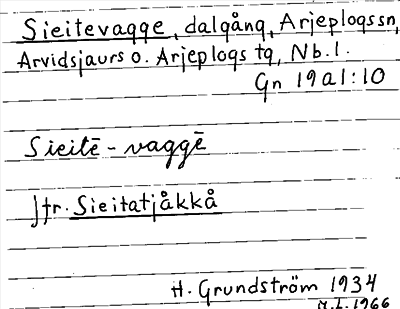 Sieitevagge, dalgång, Arjeplogssn,
Arvidsjaurs o. Arjeplogs tg, Nb.l.
Gn 19 a1:10
Sieitē-vaggē
Jfr. Sieitatjåkkå
H. Grundström 1934
1966